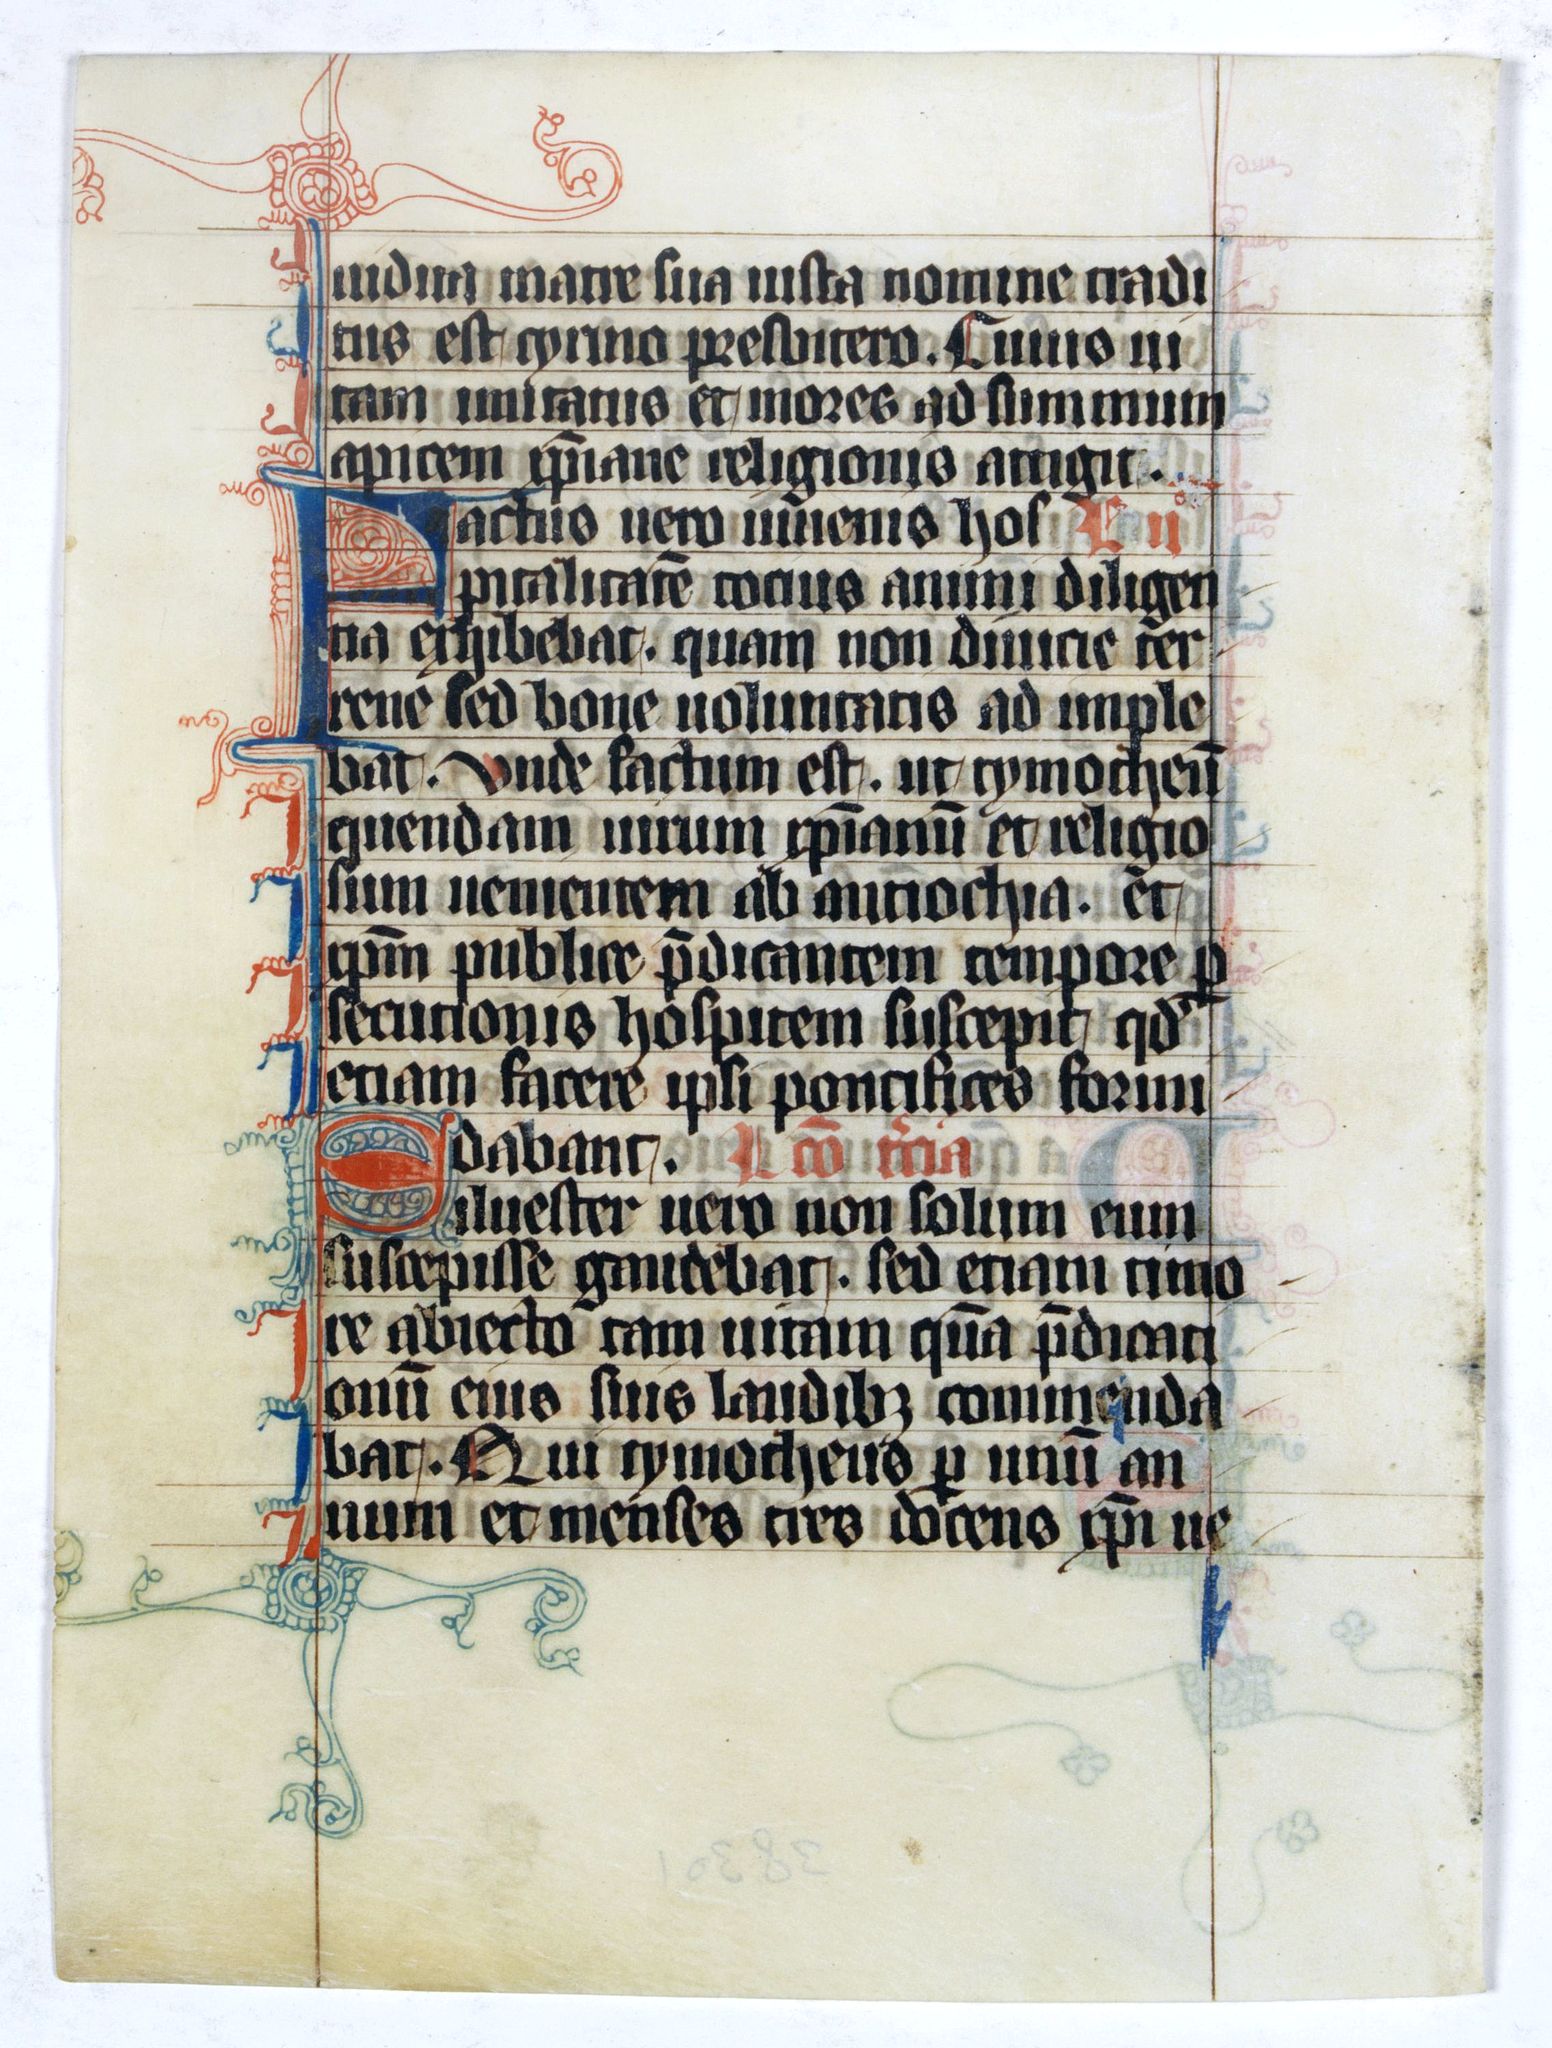 uidua matre sua iusta nomine tradi
tus est cyrino presbitero. Cuius ui
tam imitatus et mores ad summum
apicem xp̄iane religionis attigit.
Factus uero iuuenis hos L ii
pitalitatē tocius animi diligen
tia exhibebat. quam non diuicie ter
rene sed bone uoluntatis ad imple
bat. Vnde factum est. ut tymotheū
quendam uirum xp̄ianū et religio
sum uenientem ab antiochia. et
xp̄m publice p̄dicantem tempore ꝑ
secutionis hospitem suscepit qd̓
etiam facere ipsi pontifices formi
dabant. L cō t̓cia
Siluester uero non solum eum
suscepisse gaudebat. sed etiam timo
re abiecto tam uitam quā p̄dicati
onū eius suis laudibꝫ commenda
bat. Qui tymotheus ꝑ unū an
num et menses tres docens xp̄i ue
38301